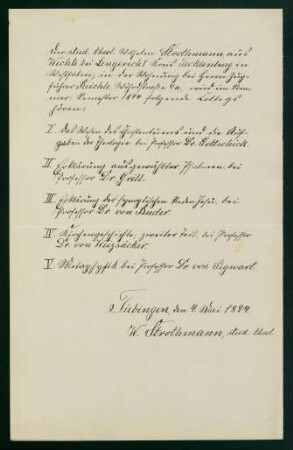 Der stud. theol. Wilhelm Strothmann, aus
Wechte bei Lengerich Kreis Tecklenburg in
Westfalen, in der Wohnung bei Herrn Zug-
führer Reichle, 4a, wird im Som-
mer-Semester 1894 folgende Kollegs
hören:
I. Das Wesen des Christentums und die Auf-
gaben der Theologie bei Professor Dr Gottschick.
II. Erklärung ausgewählter Psalmen, bei
Professor Dr. Grill.
III. Erklärung der synoptischen Reden Jesu, bei
Professor Dr. von Buder.
IV. Kirchengeschichte, zweiter Teil, bei Professor
Dr. von Weizsäcker.
V. Metaphysik bei Professor Dr von Sigwart.
Tübingen, den 4. Mai 1894
W. Strothmann, stud. theol.